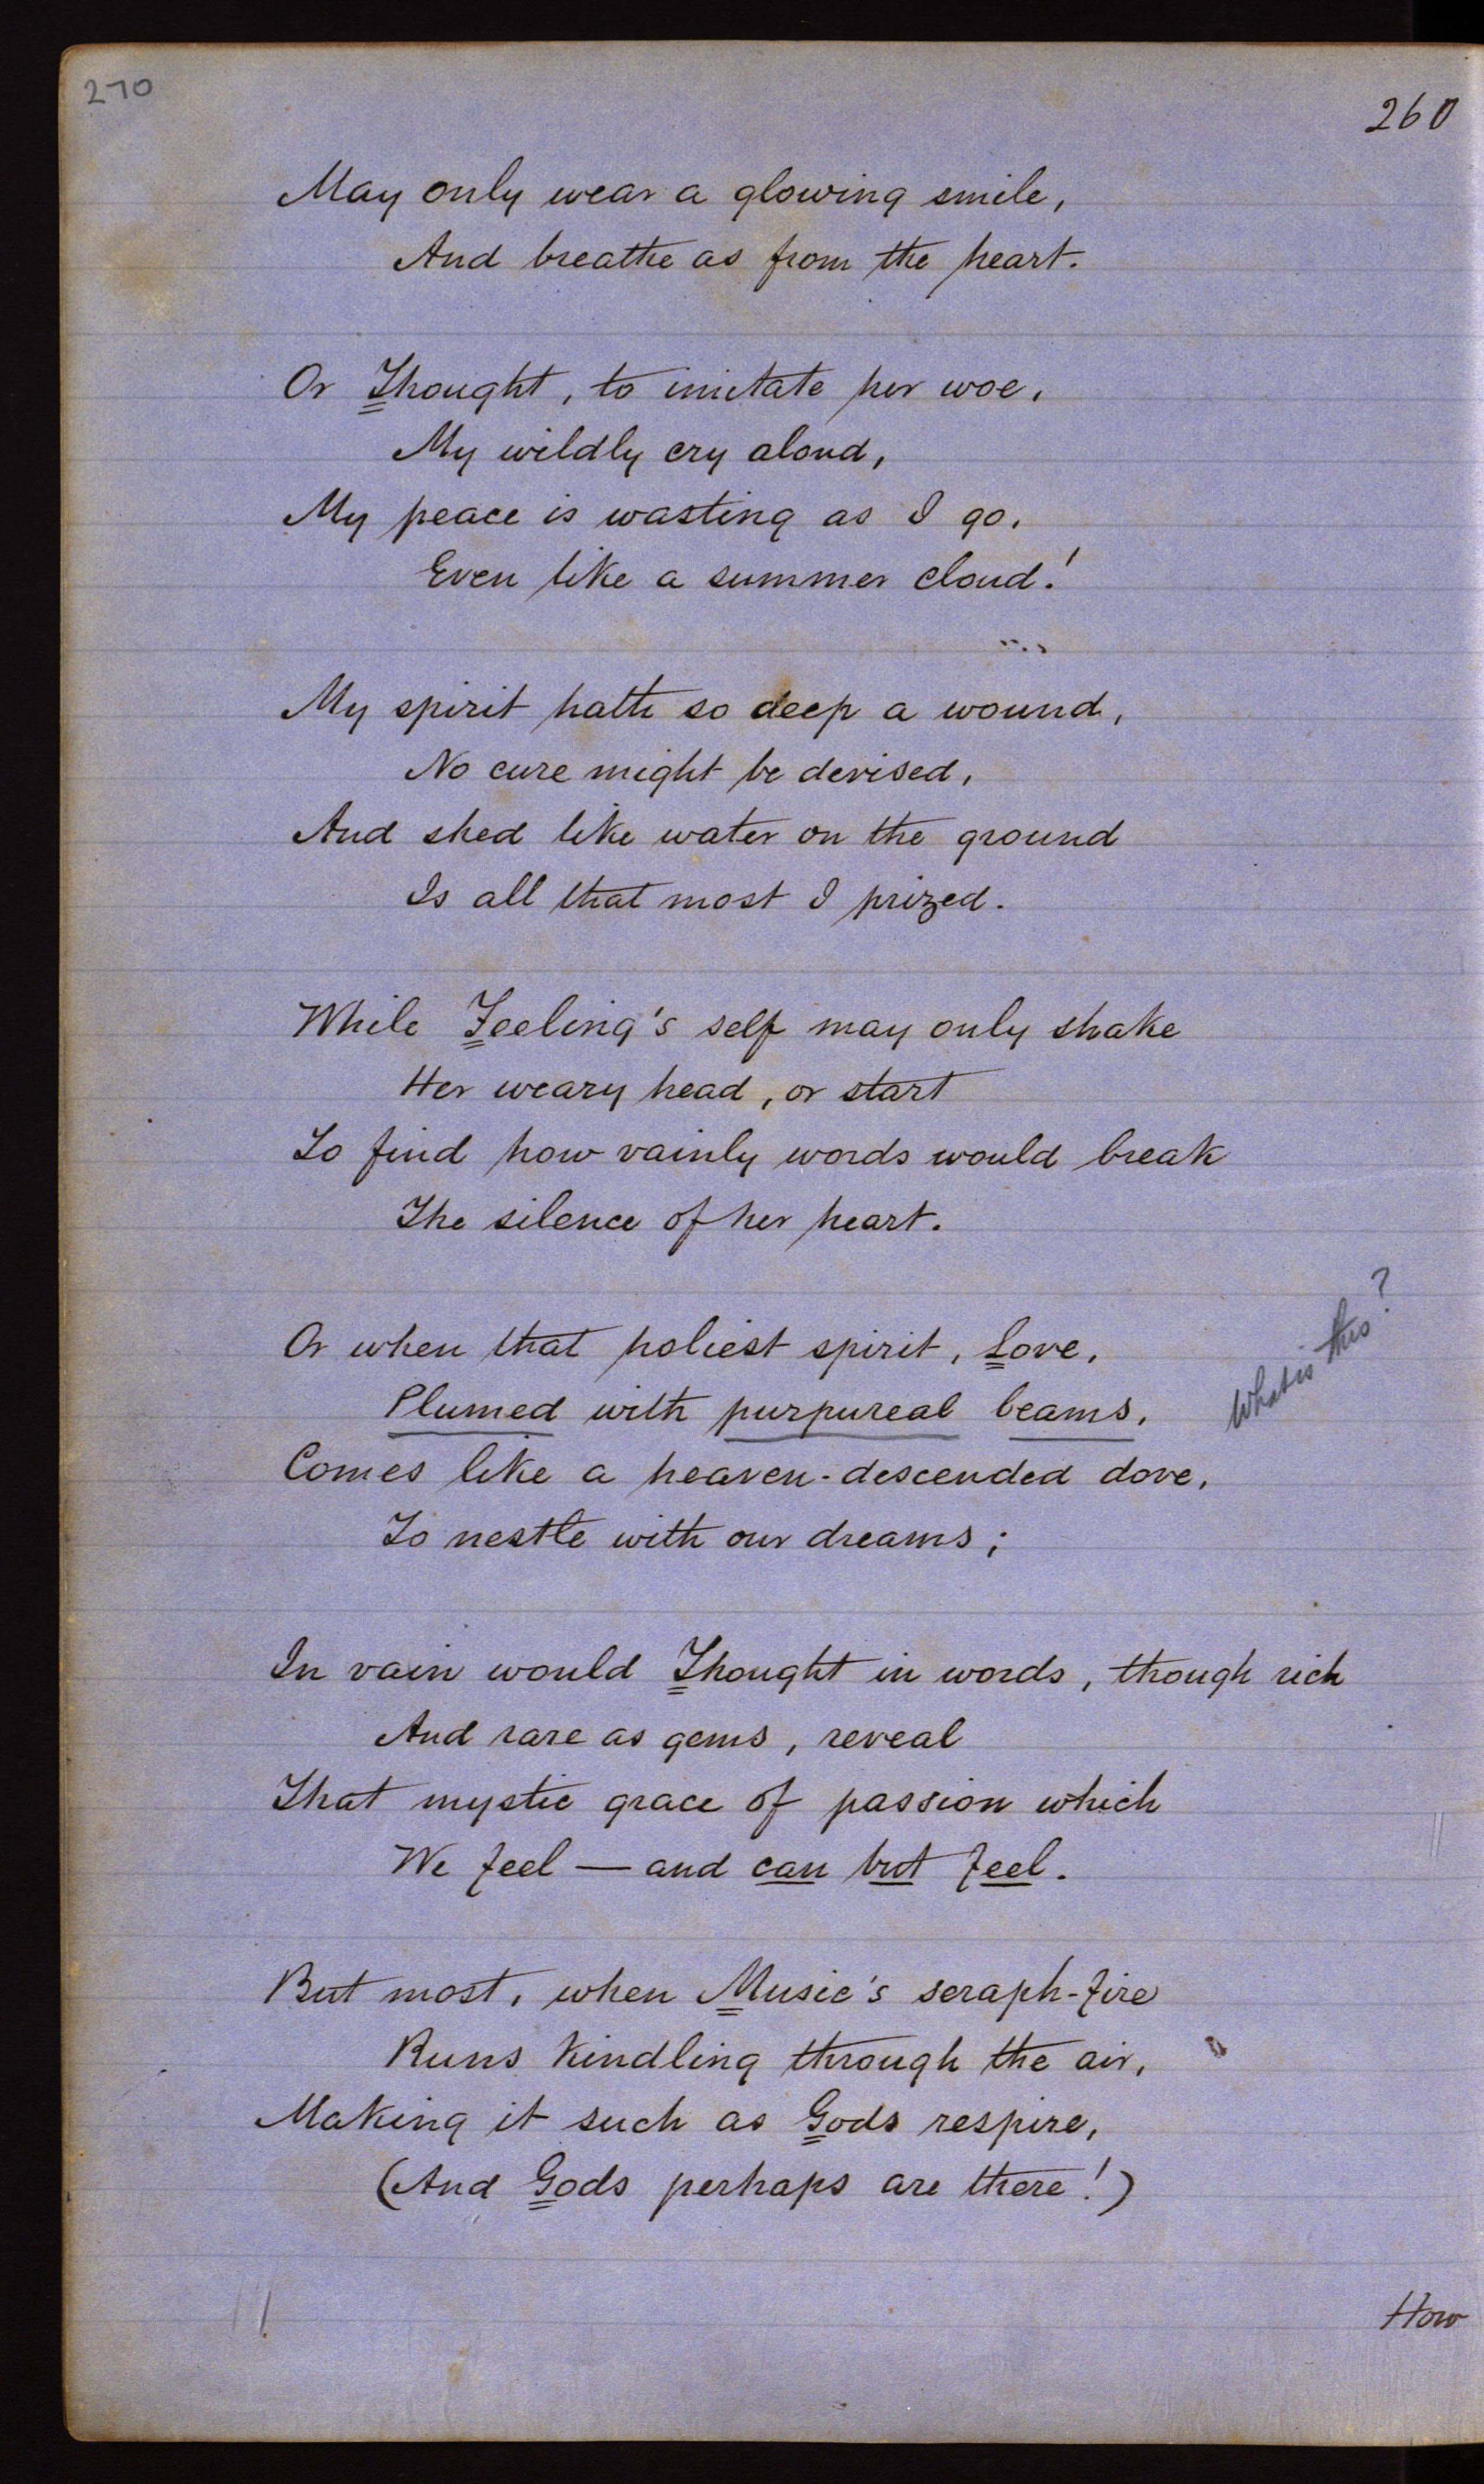 270
260
May only wear a glowing smile,
And breathe as from the heart.
Or Thought, to imitate her woe,
My wildly cry aloud,
My peace is wasting as I go,
Even like a summer cloud!
My spirit hath so deep a wound,
No cure might be devised,
And shed like water on the ground
Is all that most I prized.
While Feeling's self may only shake
Her weary head, or start
To find how vainly words would break
The silence of her heart.
Or when that holiest spirit, Love,
Plumed with purpureal beams,
What is this?
Comes like a heaven-descended dove,
To nestle with our dreams;
In vain would Thought in words, though rich
And rare as gems, reveal
That mystic grace of passion which
We feel — and can but feel.
But most, when Music's seraph-fire
Runs kindling through the air,
Making it such as Gods respire,
(And Gods perhaps are there!)
How